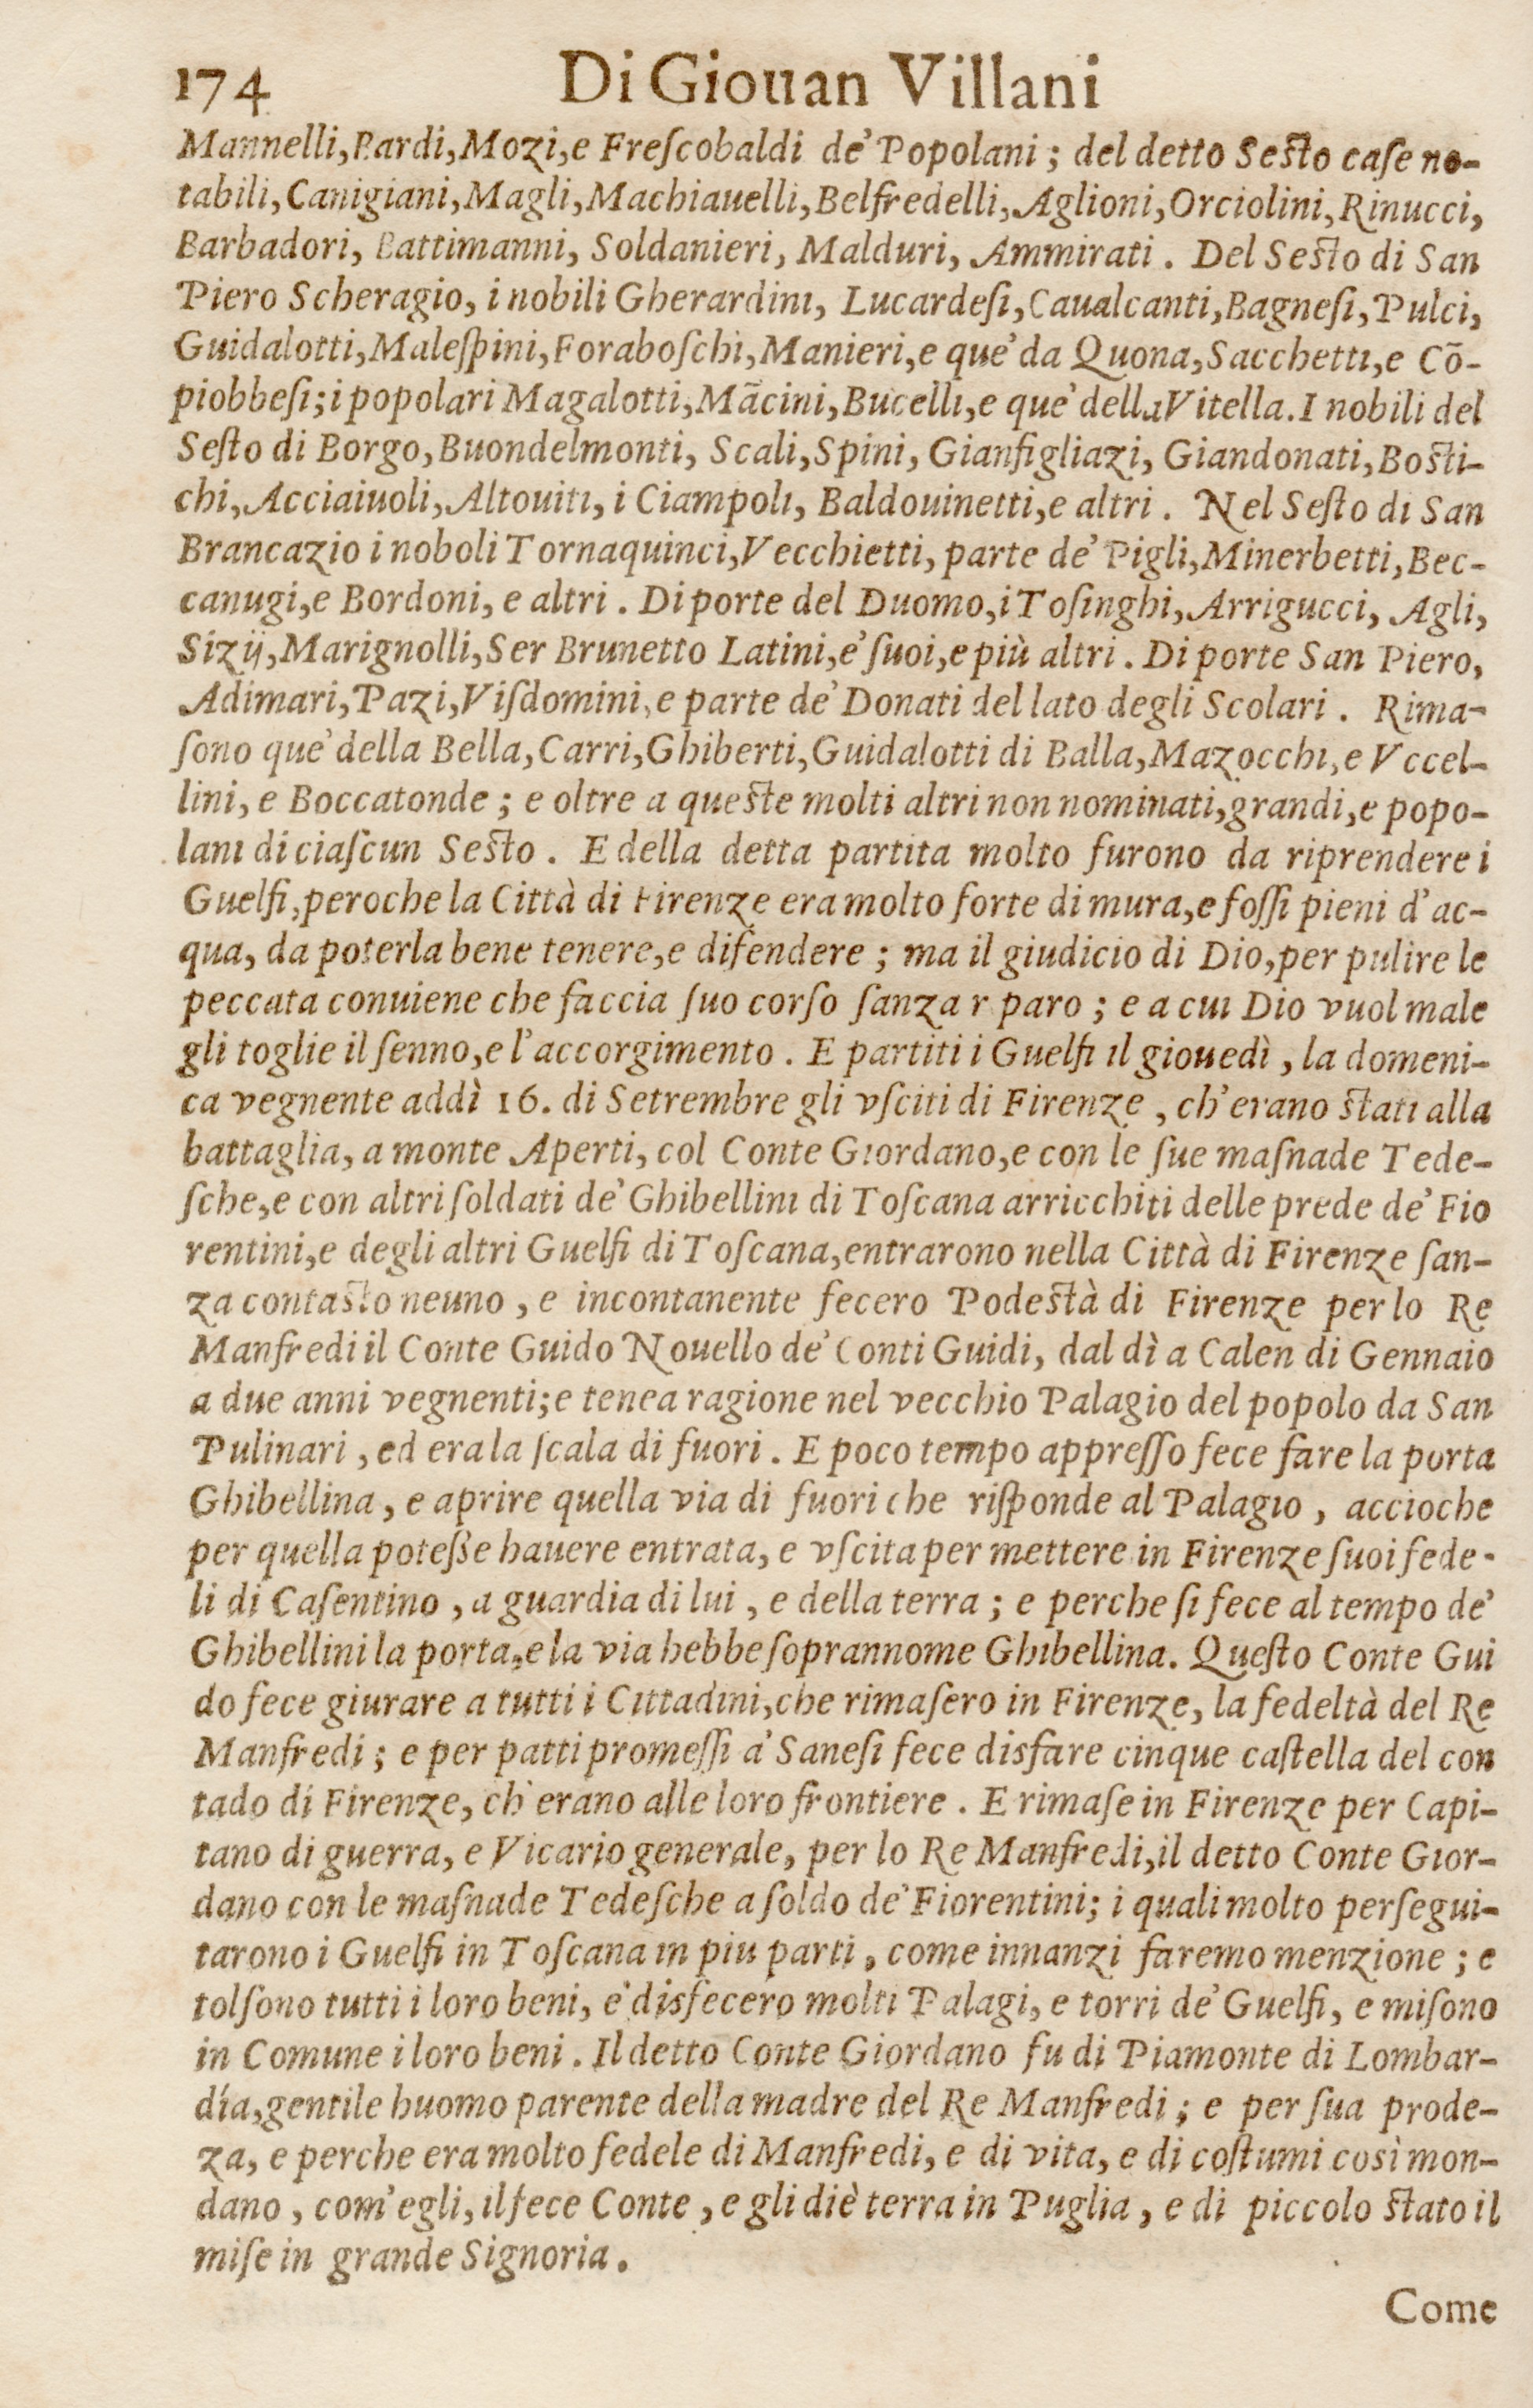 174 Di Giouan Villani
Mannelli, Bardi, Mozi, e Freſcobaldi de' Popolani; del detto Seſto caſe no-
tabili, Canigiani, Magli, Machiauelli, Belfredelli, Aglioni, Orciolini, Rinucci,
Barbadori, Battimanni, Soldanieri, Malduri, Ammirati. Del Seſto di San
Piero Scheragio, i nobili Gherardini, Lucardeſi, Caualcanti, Bagneſi, Pulci,
Guidalotti, Maleſpini, Foraboſchi, Manieri, e que' da Quona, Sacchetti, e Cō-
piobbeſi; i popolari Magalotti, Mãcini, Bucelli, e que' della Vitella. I nobili del
Seſto di Borgo, Buondelmonti, Scali, Spini, Gianfigliazi, Giandonati, Boſti-
chi, Acciaiuoli, Altouiti, i Ciampoli, Baldouinetti, e altri. Nel Seſto di San
Brancazio i noboli Tornaquinci, Vecchietti, parte de' Pigli, Minerbetti, Bec-
canugi, e Bordoni, e altri. Di porte del Duomo, i Toſinghi, Arrigucci, Agli,
Sizij, Marignolli, Ser Brunetto Latini, e' ſuoi, e più altri. Di porte San Piero,
Adimari, Pazi, Viſdomini, e parte de' Donati del lato degli Scolari. Rima-
ſono que' della Bella, Carri, Ghiberti, Guidalotti di Balla, Mazocchi, e Vccel-
lini, e Boccatonde; e oltre a queſte molti altri non nominati, grandi, e popo-
lani di ciaſcun Seſto. E della detta partita molto furono da riprendere i
Guelfi, peroche la Città di Firenze era molto forte di mura, e foſſi pieni d'ac-
qua, da poterla bene tenere, e difendere; ma il giudicio di Dio, per pulire le
peccata conuiene che faccia ſuo corſo ſanza r paro; e a cui Dio vuol male
gli toglie il ſenno, e l'accorgimento. E partiti i Guelfi il giouedì, la domeni-
ca vegnente addì 16. di Setrembre gli vſciti di Firenze, ch'erano ſtati alla
battaglia, a monte Aperti, col Conte Giordano, e con le ſue maſnade Tede-
ſche, e con altri ſoldati de' Ghibellini di Toſcana arricchiti delle prede de' Fio
rentini, e degli altri Guelfi di Toſcana, entrarono nella Città di Firenze ſan-
za contaſto neuno, e incontanente fecero Podeſtà di Firenze per lo Re
Manfredi il Conte Guido Nouello de' Conti Guidi, dal dì a Calen di Gennaio
a due anni vegnenti; e tenea ragione nel vecchio Palagio del popolo da San
Pulinari, ed era la ſcala di fuori. E poco tempo appreſſo fece fare la porta
Ghibellina, e aprire quella via di fuori che riſponde al Palagio, accioche
per quella poteſſe hauere entrata, e vſcita per mettere in Firenze ſuoi fede-
li di Caſentino, a guardia di lui, e della terra; e perche ſi fece al tempo de'
Ghibellini la porta, e la via hebbe ſoprannome Ghibellina. Queſto Conte Gui
do fece giurare a tutti i Cittadini, che rimaſero in Firenze, la fedeltà del Re
Manfredi; e per patti promeſſi a' Saneſi fece disfare cinque caſtella del con
tado di Firenze, ch'erano alle loro frontiere. E rimaſe in Firenze per Capi-
tano di guerra, e Vicario generale, per lo Re Manfredi, il detto Conte Gior-
dano con le maſnade Tedeſche a ſoldo de' Fiorentini; i quali molto perſegui-
tarono i Guelfi in Toſcana in piu parti, come innanzi faremo menzione; e
tolſono tutti i loro beni, e disfecero molti Palagi, e torri de' Guelfi, e miſono
in Comune i loro beni. Il detto Conte Giordano fu di Piamonte di Lombar-
dia, gentile huomo parente della madre del Re Manfredi; e per ſua prode-
za, e perche era molto fedele di Manfredi, e di vita, e di coſtumi così mon-
dano, com'egli, il fece Conte, e gli diè terra in Puglia, e di piccolo ſtato il
miſe in grande Signoria.
Come